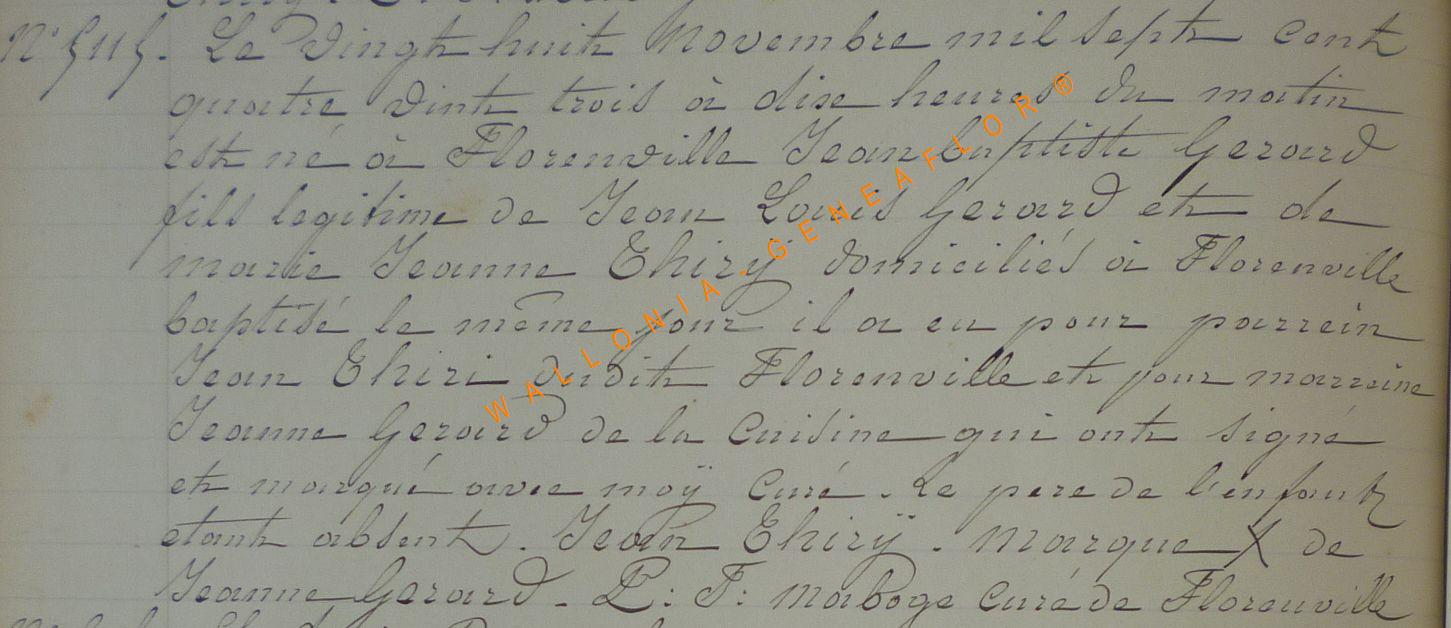 N° 5115. Le Vingt huit Novembre mil sept cent
quatre vint trois à dix heures du matin
est né à Florenville Jean baptiste Gerard
fils legitime de Jean Louis Gerard et de
marie Jeanne Thirÿ domiciliés à Florenville
baptisé le même jour il a eu pour parrein
Jean Thiri dudit Florenville et pour marreine
Jeanne Gerard de la Cuisine qui ont signé
et marqué avec moÿ Curé. Le pere de l'enfant
etant absent. Jean Thirÿ. Marque X de
Jeanne Gerard. P: F: Maboge Curé de Florenville
WALLONIA.GENEAFLOR®